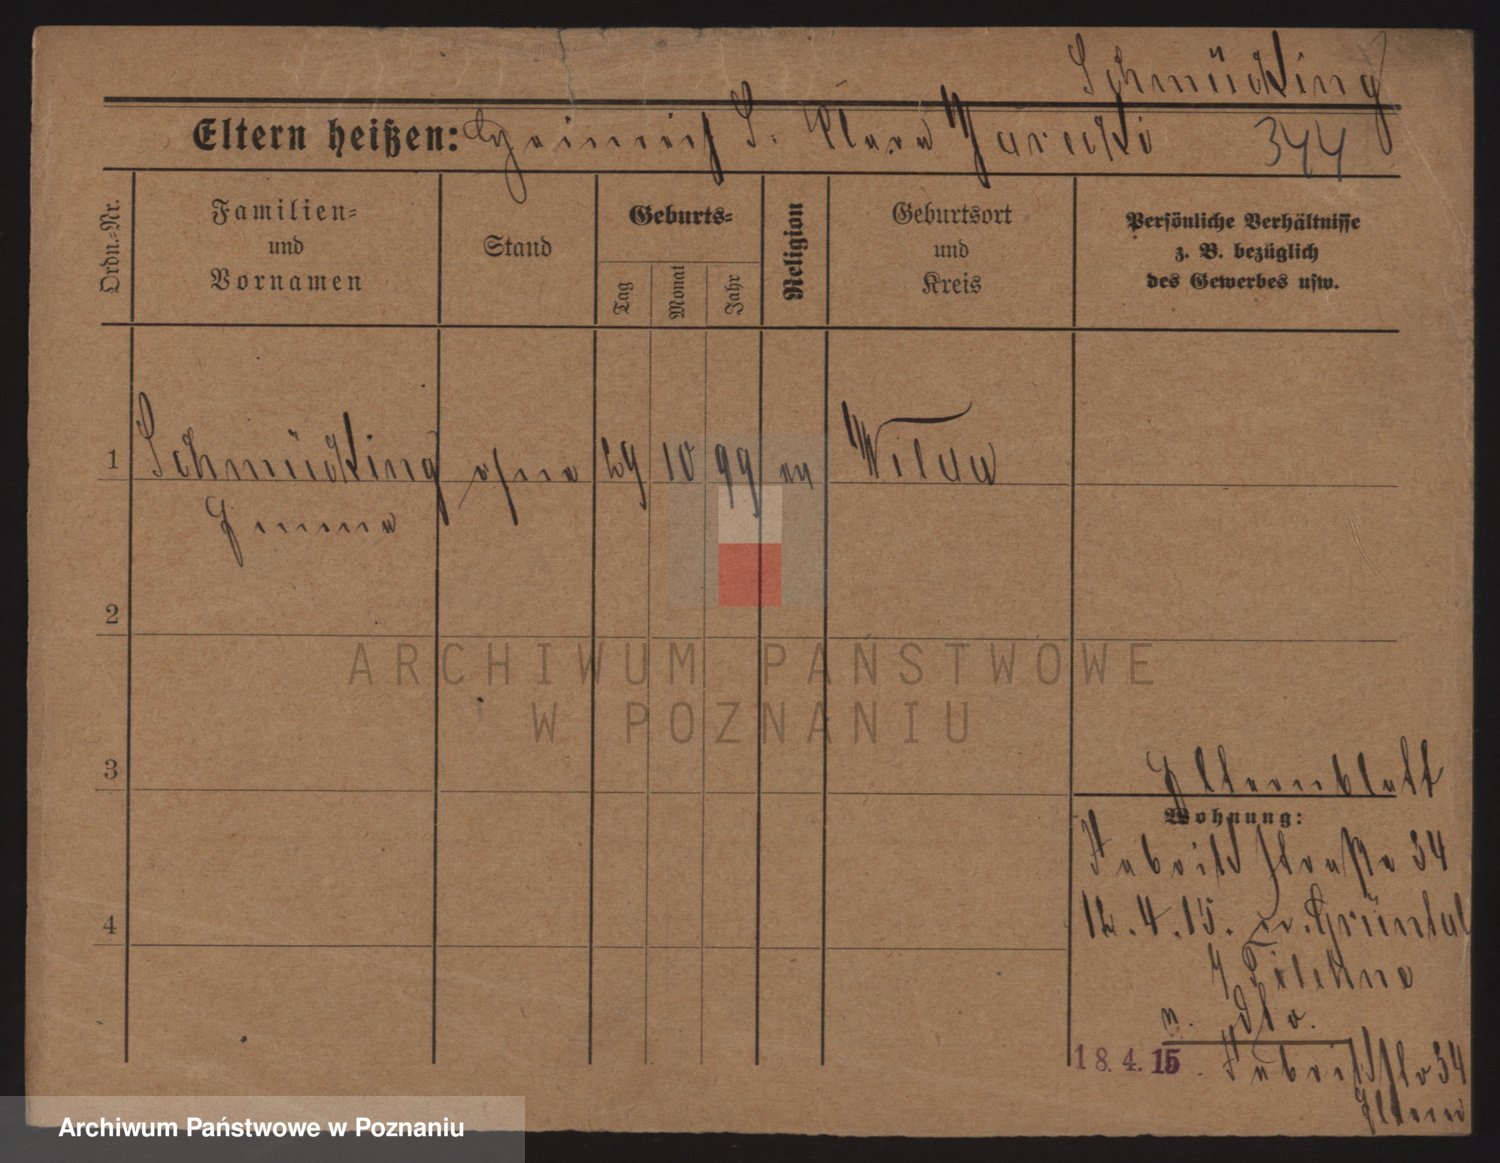 Schmücking
Eltern heißen: Heinrich S. Klara Jarecki 344
Ordn.=Nr.
Familien=
und
Vornamen
Stand
Geburts=
Tag
Monat
Jahr
Religion
Geburtsort
und
Kreis
Persönliche Verhältnisse
z. B. bezüglich
des Gewerbes usw.
1 Schmücking ohne 29 10 99 ev Wilda
Emma
2
3
4
Elternblatt
Wohnung:
Fabrikstraße 34
12.4.15. Grüntal
Filehne
n. dto.
18.4.15. Fabrikstr 34
Eltern
ARCHIWUM PAŃSTWOWE
W POZNANIU
Archiwum Państwowe w Poznaniu